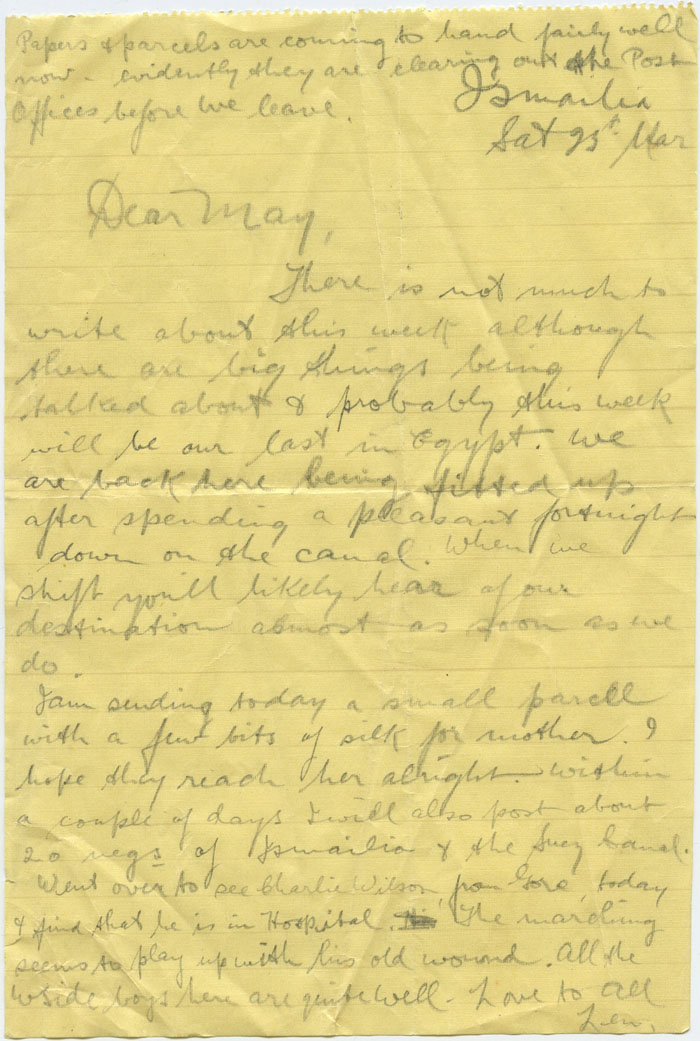 Papers & parcels are coming to hand fairly well
now - evidently they are clearing out the Post
Offices before we leave.
Ismailia
Sat 25th Mar
Dear May,
There is not much to
write about this week although
there are big things being
talked about & probably this week
will be our last in Egypt. We
are back here being fitted up
after spending a pleasant fortnight
down on the canal. When we
shift you'll likely hear of our
destination almost as soon as we
do.
I am sending today a small parcell
with a few bits of silk for mother. I
hope they reach her alright. Within
a couple of days I will also post about
20 negs of Ismailia & the Suez Canal.
Went over to see Charlie Wilson, from Gore, today
& find that he is in Hospital. The marching
seems to play up with his old wound. All the
W'side boys here are quite well - Love to All
Len,